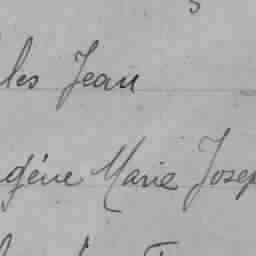 les Jean
gène Marie Josep